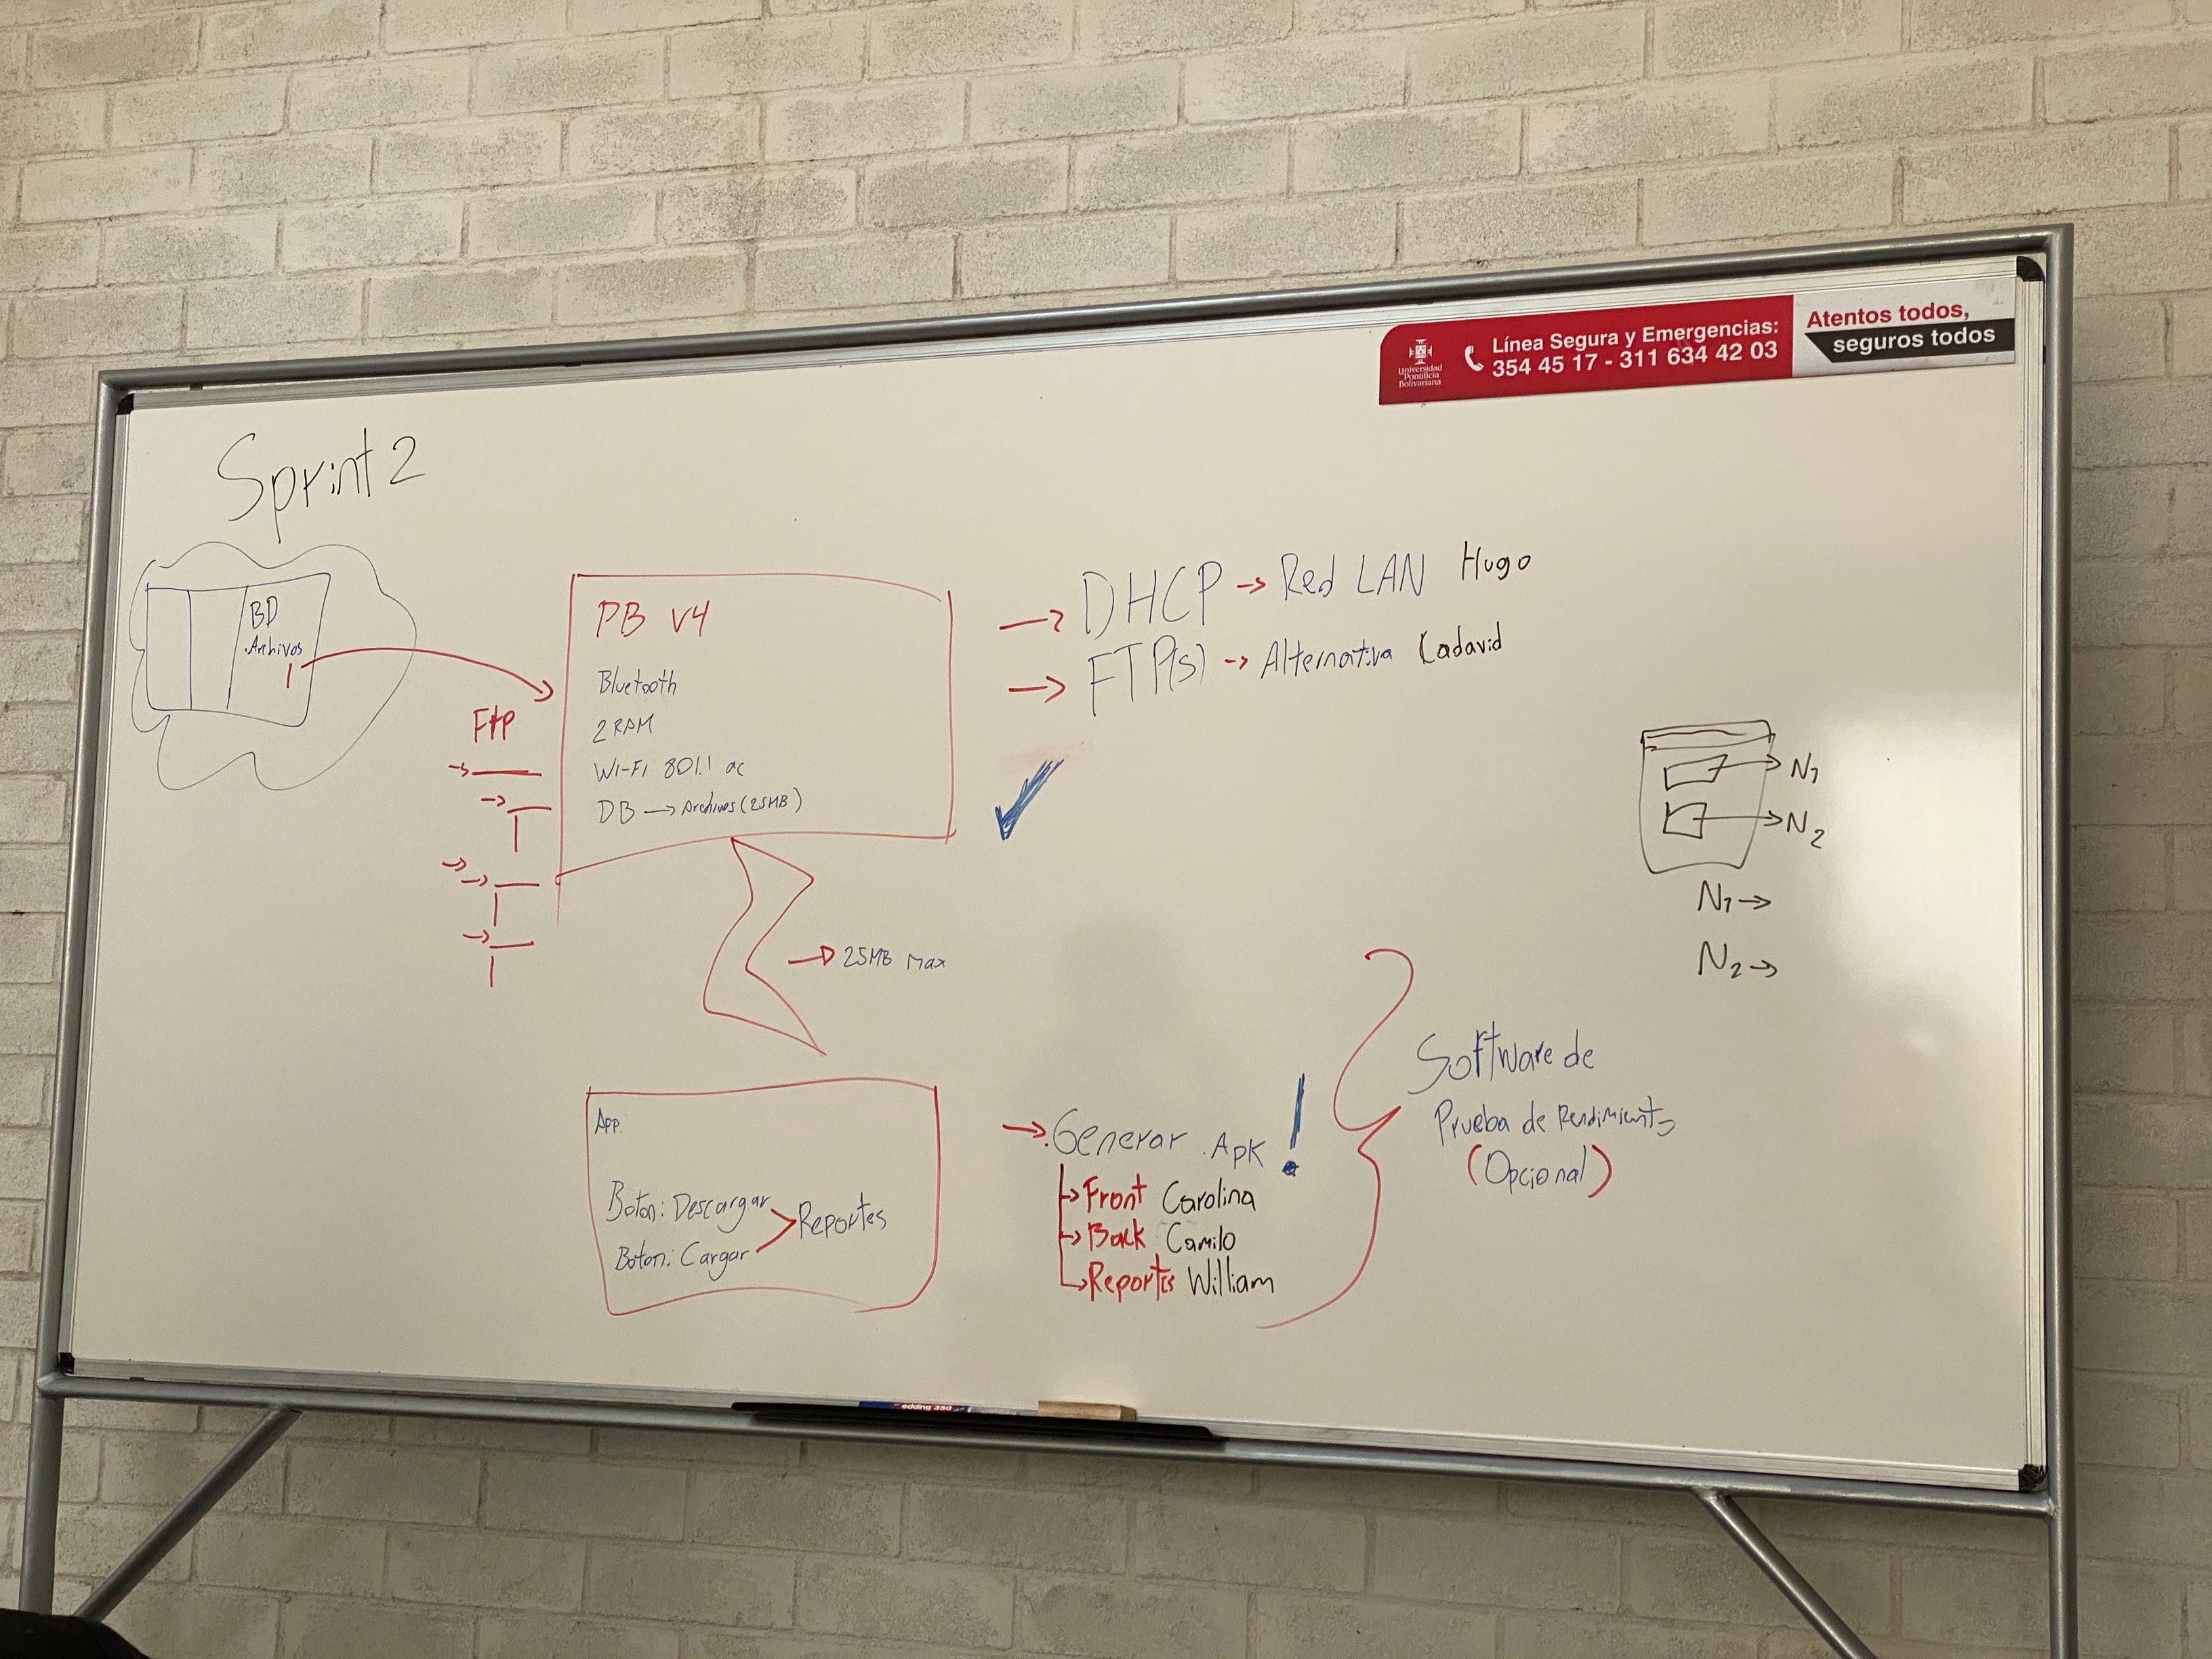 Universidad
Pontificia
Bolivariana
Línea Segura y Emergencias:
354 45 17 - 311 634 42 03
Atentos todos,
seguros todos
Sprint 2
BD
Archivos
Ftp
PB V4
Bluetooth
2 RAM
Wi-Fi 801.1 ac
DB → Archivos (25MB)
→ DHCP → Red LAN Hugo
→ FTP(s) → Alternativa Cadavid
N1
N2
N1 →
N2 →
→ 25MB Max
App.
Boton: Descargar
Boton: Cargar
Reportes
→ Generar .Apk !
→ Front Carolina
→ Back Camilo
→ Reportes William
Software de
Prueba de Rendimiento
(Opcional)
edding 350